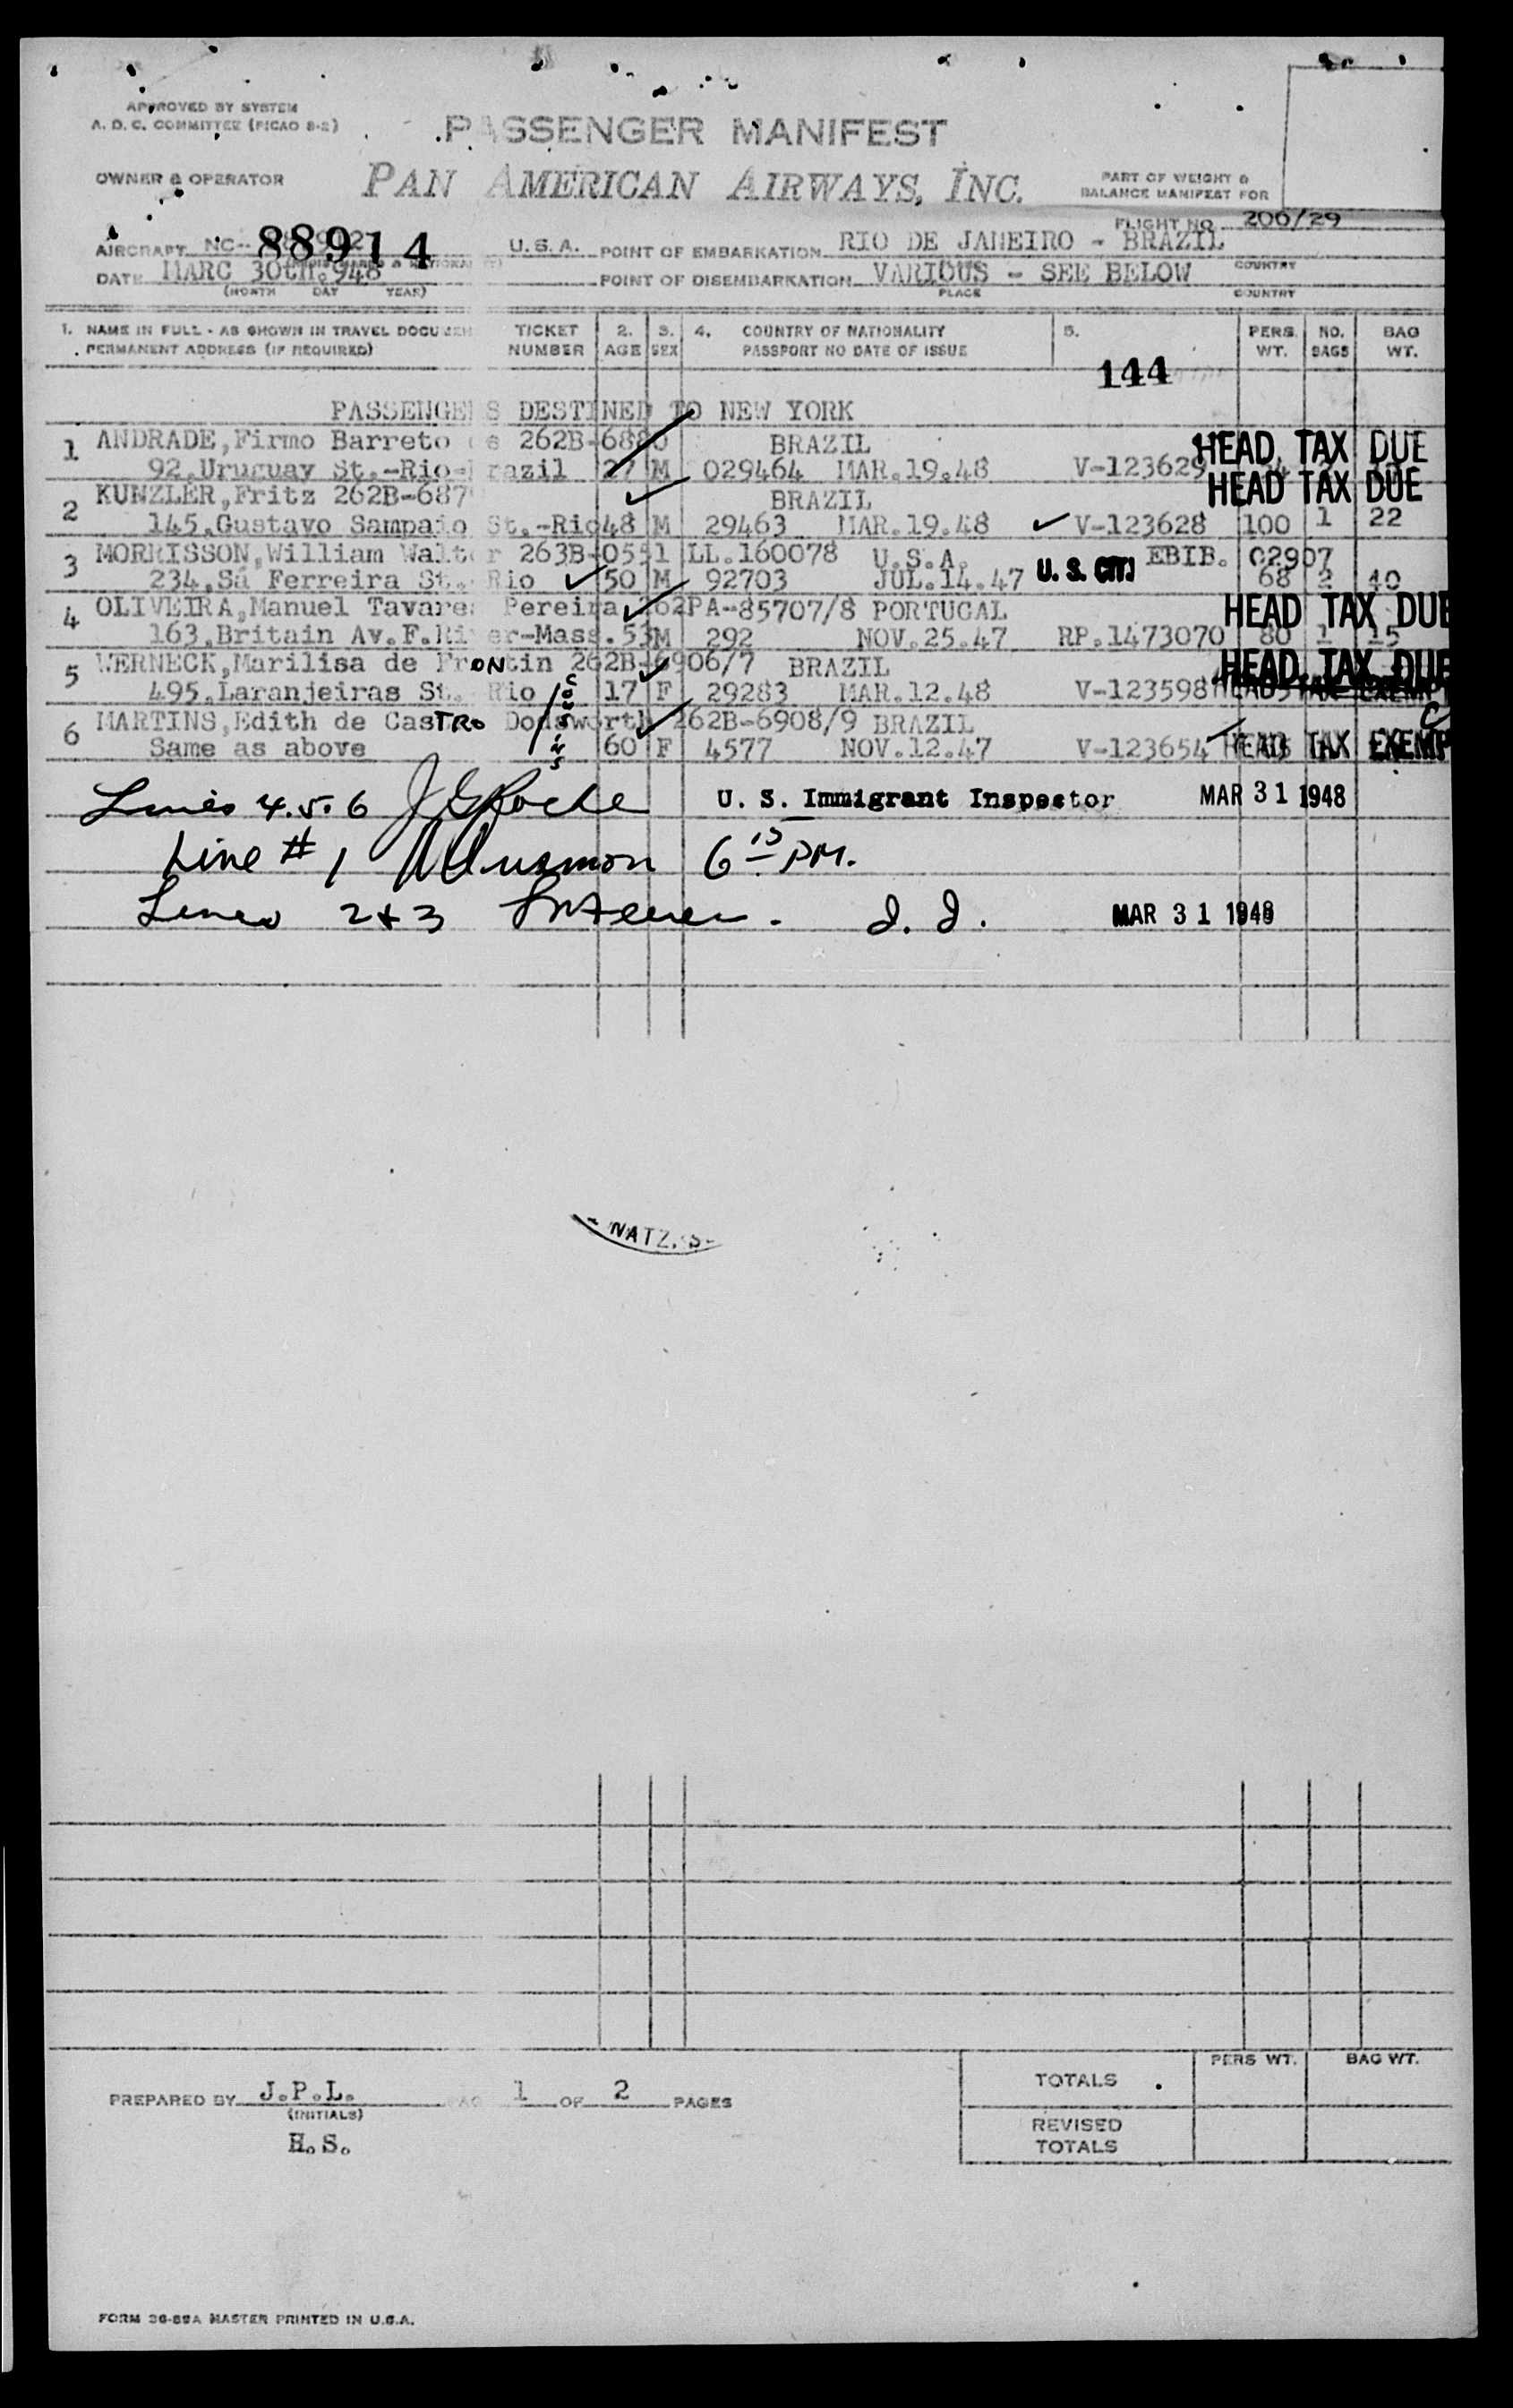 APPROVED BY SYSTEM
A. D. C. COMMITTEE (PICAO 8-2)
PASSENGER MANIFEST
OWNER & OPERATOR PAN AMERICAN AIRWAYS, INC.
PART OF WEIGHT &
BALANCE MANIFEST FOR
FLIGHT NO. 206/29
AIRCRAFT NC- 88914 U.S.A. POINT OF EMBARKATION RIO DE JANEIRO - BRAZIL
COUNTRY
DATE MARC 30th.948 POINT OF DISEMBARKATION VARIOUS - SEE BELOW
(MONTH DAY YEAR) PLACE COUNTRY
1. NAME IN FULL - AS SHOWN IN TRAVEL DOCUMEN TICKET 2. 3. 4. COUNTRY OF NATIONALITY 5. PERS. NO. BAG
PERMANENT ADDRESS (IF REQUIRED) NUMBER AGE SEX PASSPORT NO DATE OF ISSUE WT. BAGS WT.
144
PASSENGERS DESTINED TO NEW YORK
1 ANDRADE,Firmo Barreto de 262B-6880 BRAZIL HEAD TAX DUE
92,Uruguay St.-Rio-Brazil 27 M 029464 MAR.19.48 V-123629
2 KUNZLER,Fritz 262B-687 BRAZIL HEAD TAX DUE
145,Gustavo Sampaio St.-Rio 48 M 29463 MAR.19.48 V-123628 100 1 22
3 MORRISSON,William Walter 263B-0551 LL.160078 U.S.A. U. S. CIT. EBIB. 02907
234,Sá Ferreira St. Rio 50 M 92703 JUL.14.47 68 2 40
4 OLIVEIRA,Manuel Tavares Pereira 262PA-85707/8 PORTUGAL HEAD TAX DUE
163,Britain Av.F.River-Mass. 53 M 292 NOV.25.47 RP.1473070 80 1 15
5 WERNECK,Marilisa de FrONtin 262B-6906/7 BRAZIL HEAD TAX DUE
495,Laranjeiras St. Rio 17 F 29283 MAR.12.48 V-123598 HEAD TAX EXEMPT
COUSINS
6 MARTINS,Edith de CasTRO Dodsworth 262B-6908/9 BRAZIL
Same as above 60 F 4577 NOV.12.47 V-123654 HEAD TAX EXEMP
Lines 4.5.6 J G Roche U. S. Immigrant Inspector MAR 31 1948
Line # 1 6 15 PM.
Lines 2 & 3 I. I. MAR 31 1948
PREPARED BY J.P.L. 1 OF 2 PAGES
(INITIALS)
H.S.
PERS WT. BAG WT.
TOTALS
REVISED
TOTALS
FORM 36-89A MASTER PRINTED IN U.S.A.